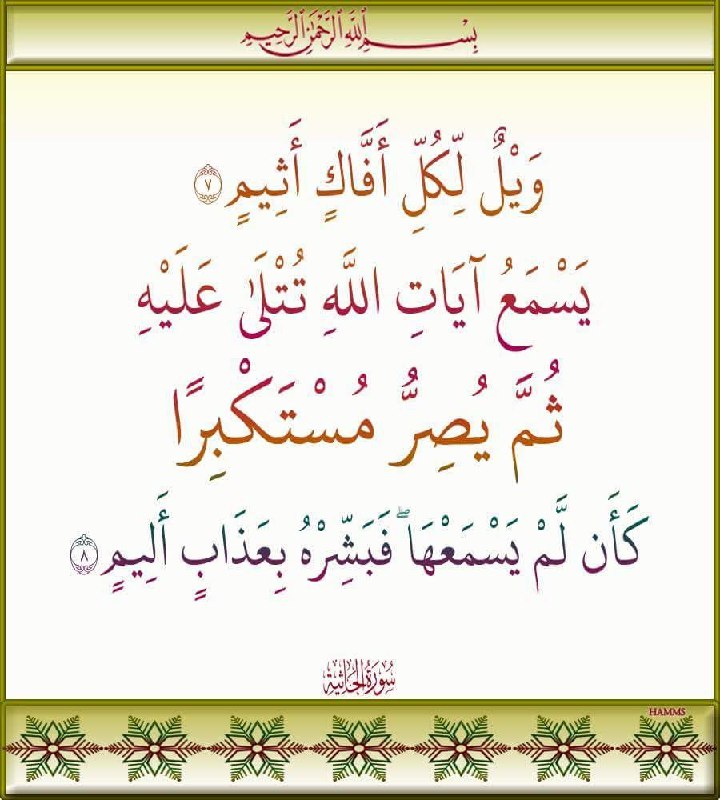 بِسْمِ اللَّهِ الرَّحْمَٰنِ الرَّحِيمِ
وَيْلٌ لِّكُلِّ أَفَّاكٍ أَثِيمٍ ٧
يَسْمَعُ آيَاتِ اللَّهِ تُتْلَىٰ عَلَيْهِ
ثُمَّ يُصِرُّ مُسْتَكْبِرًا
كَأَن لَّمْ يَسْمَعْهَا ۖ فَبَشِّرْهُ بِعَذَابٍ أَلِيمٍ ٨
سُورَةُ الجَاثِيَة
HAMMS